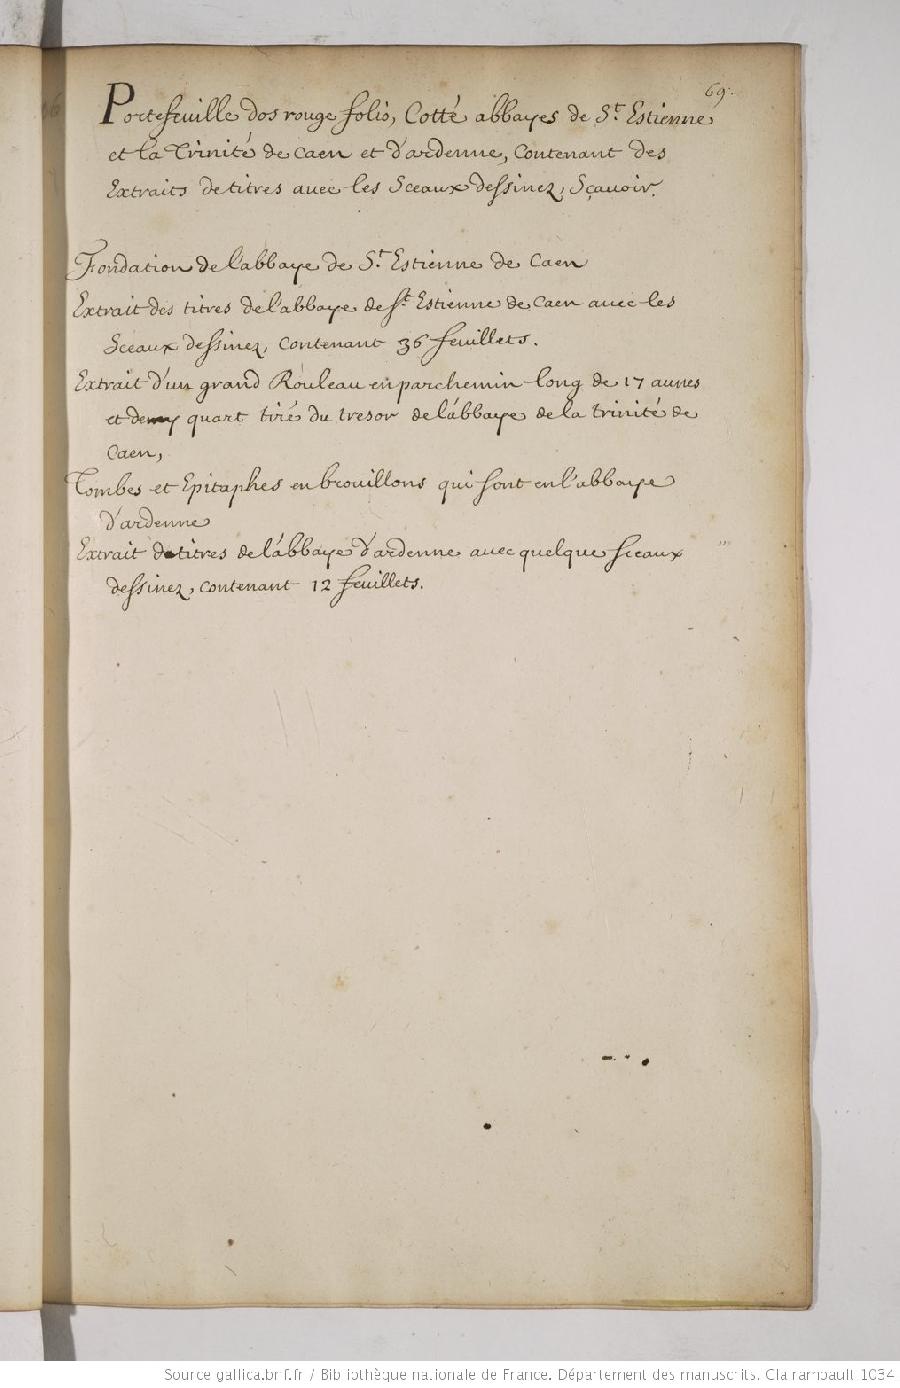 69.
Portefeuille dos rouge folio, Cotté abbayes de St. Estienne
et la Trinité de Caen et d'ardenne, Contenant des
Extraits de titres avec les Sceaux dessinez, Sçavoir.
Fondation de l'abbaye de St. Estienne de Caen
Extrait des titres de l'abbaye de St. Estienne de Caen avec les
Sceaux dessinez, contenant 36 feuillets.
Extrait d'un grand Rouleau en parchemin long de 17 aunes
et demy quart tiré du tresor de l'abbaye de la trinité de
Caen,
Tombes et Epitaphes en brouillons qui sont en l'abbaye
d'ardenne
Extrait de titres de l'abbaye d'ardenne avec quelque sceaux
dessinez, contenant 12 feuillets.
Source gallica.bnf.fr / Bibliothèque nationale de France. Département des manuscrits. Clairambault 1034